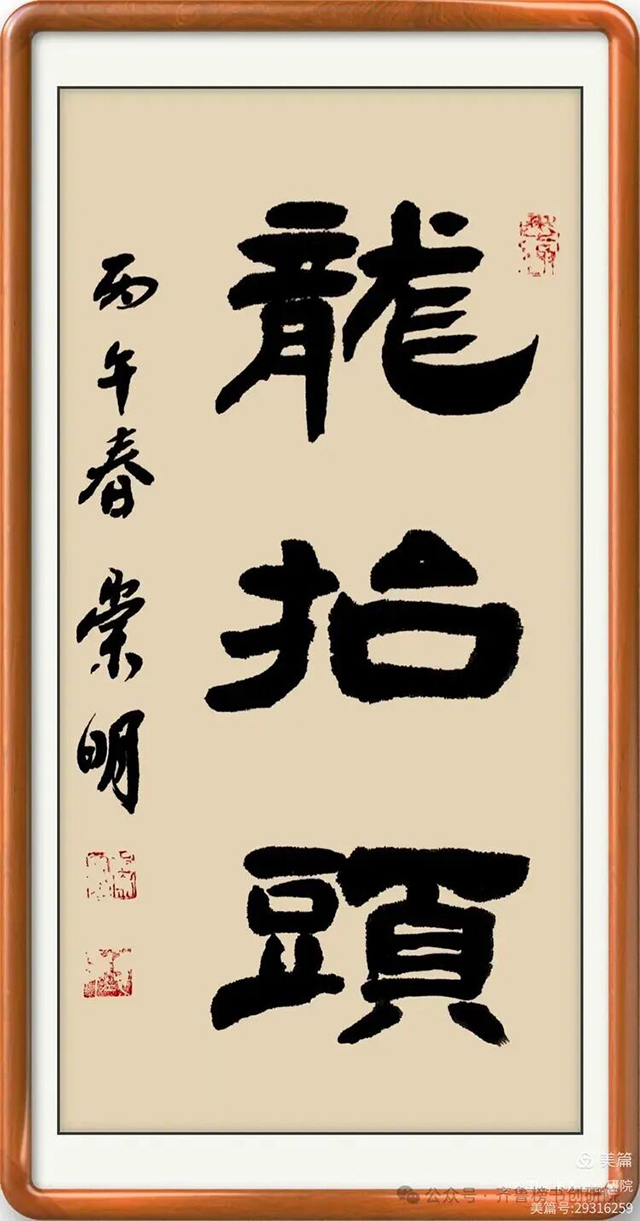 龍抬頭
丙午春 崇明
美篇
公众号 · 齐鲁榜书创研院
美篇号:29316259